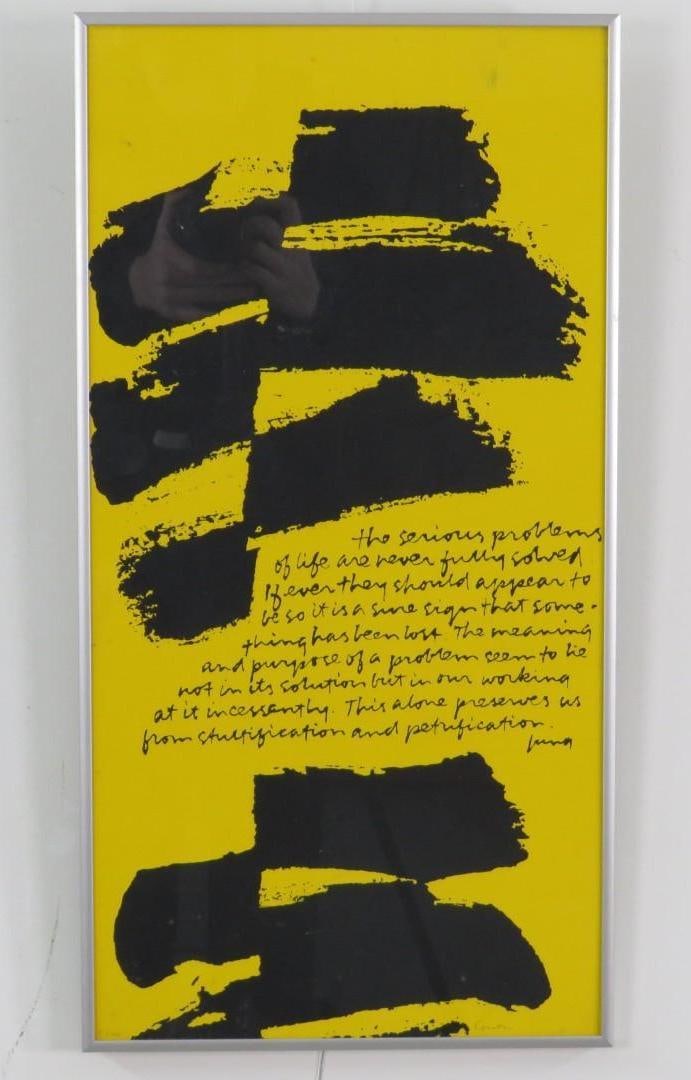 the serious problems
of life are never fully solved
If ever they should appear to
be so it is a sure sign that some-
thing has been lost The meaning
and purpose of a problem seem to lie
not in its solution but in our working
at it incessantly. This alone preserves us
from stultification and petrification.
Jung